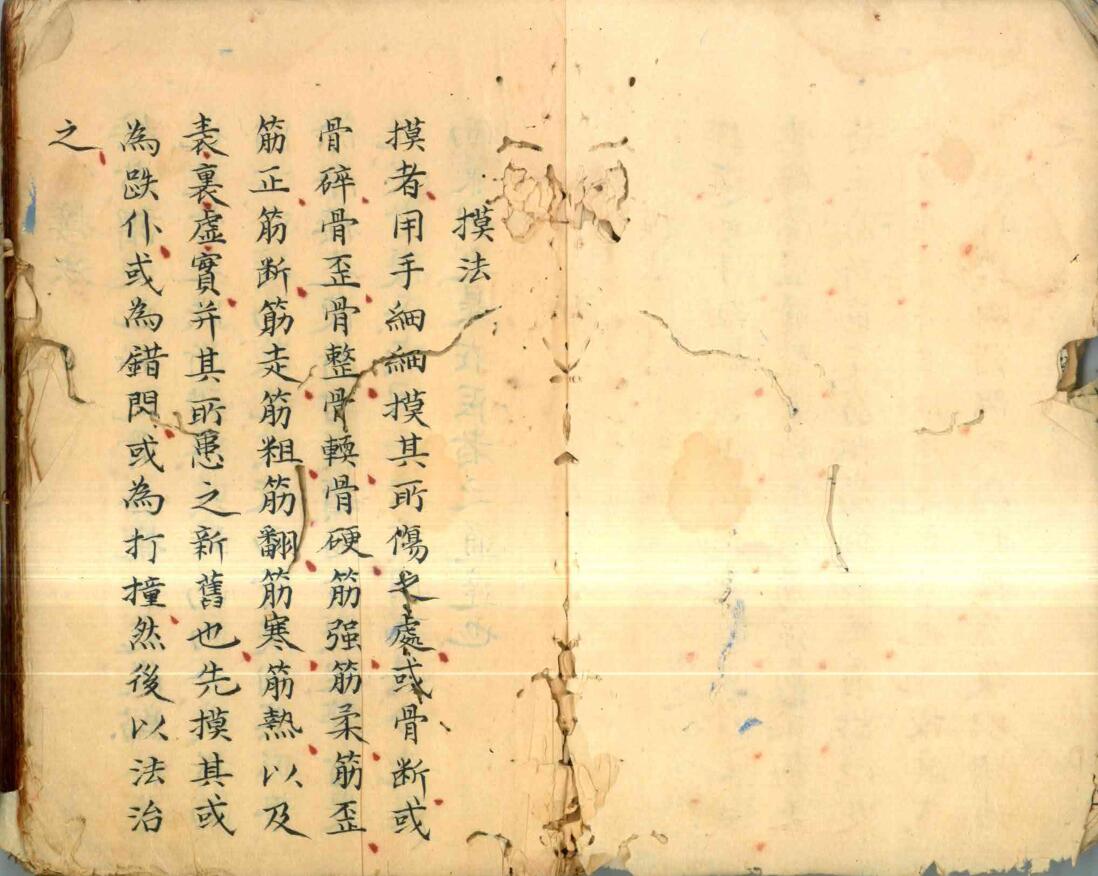 摸法
摸者用手細細摸其所傷之處或骨断或
骨碎骨歪骨整骨輭骨硬筋强筋柔筋歪
筋正筋断筋走筋粗筋翻筋寒筋熱以及
表裏虛實并其所患之新舊也先摸其或
為跌仆或為錯閃或為打撞然後以法治
之